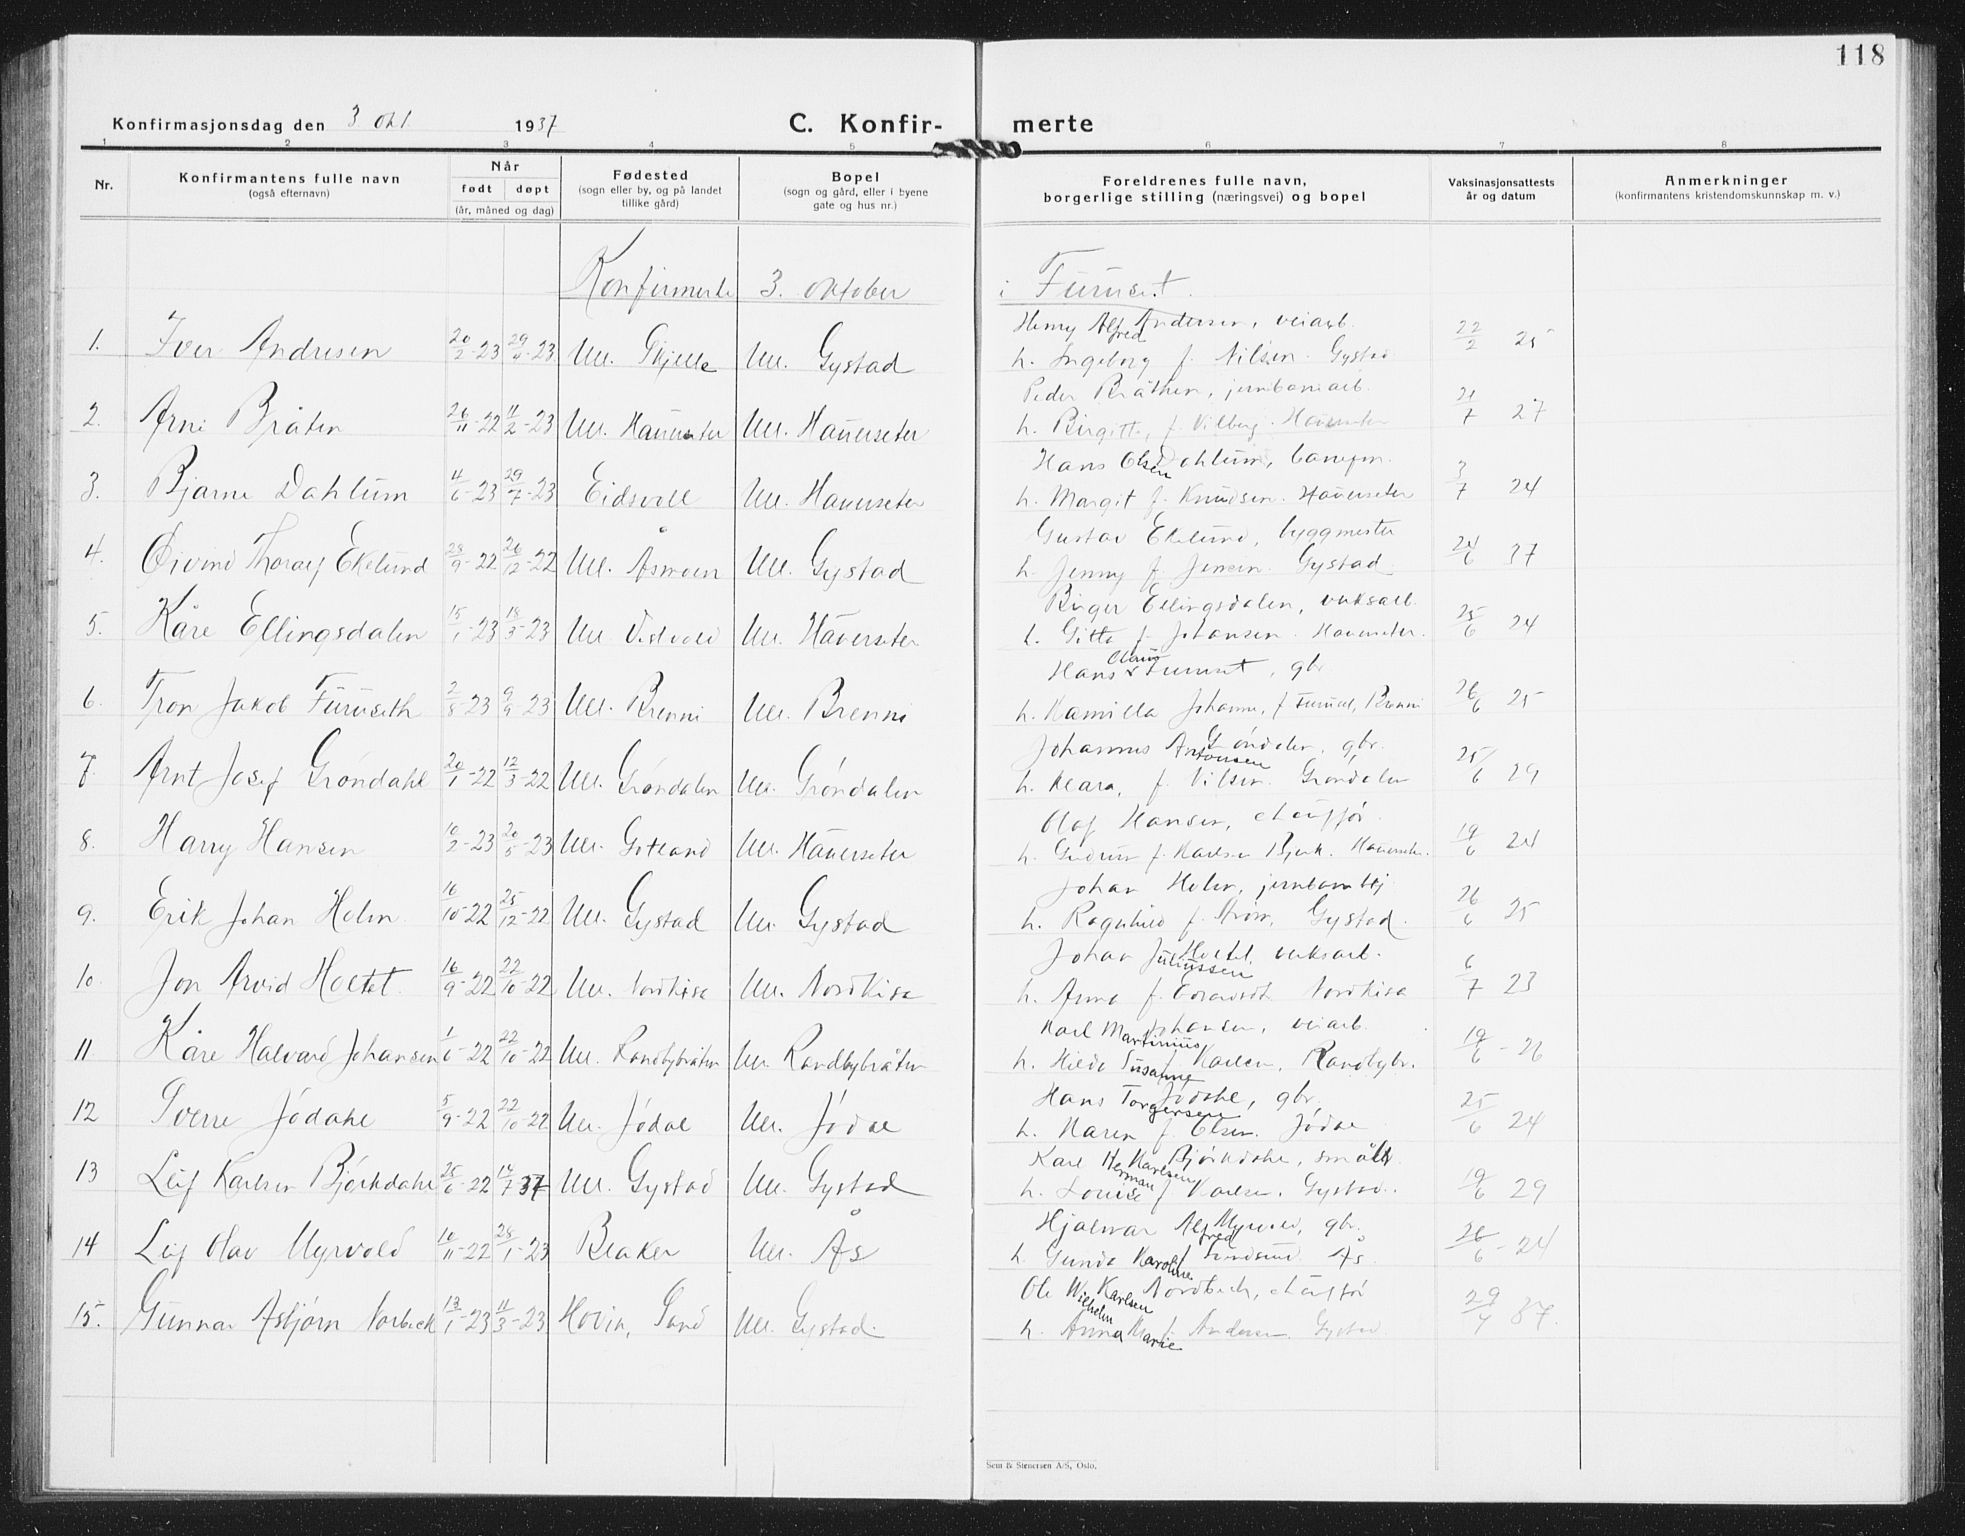 118
Konfirmasjonsdag den 3. okt. 1937 C. Konfir- merte
1 2 3 4 5 6 7 8
Nr. Konfirmantens fulle navn (også efternavn) Når født døpt (år, måned og dag) Fødested (sogn eller by, og på landet tillike gård) Bopel (sogn og gård, eller i byene gate og hus nr.) Foreldrenes fulle navn, borgerlige stilling (næringsvei) og bopel Vaksinasjonsattests år og datum Anmerkninger (konfirmantens kristendomskunnskap m. v.)
Konfirmerte 3. oktober i Furuset.
Henry Alfred Andersen, veiarb.
1. Iver Andresen 20/2-23 23 Ull. Skjelle Ull. Gystad h. Ingeborg f. Nilsen. Gystad 22/2 25
Peder Bråthen, jernbanearb.
2. Arne Bråten 26/11-22 11/2-23 Ull. Hauerseter Ull. Hauerseter h. Birgitte, f. Vilberg. Hauerseter 21/7 27
Hans Olsen Dahlum, banefm.
3. Bjarne Dahlum 4/6-23 29/7-23 Eidsvoll Ull. Hauerseter h. Margit f. Knudsen. Hauerseter 3/7 24
Gustav Ekelund, byggmester
4. Øivind Thoralf Ekelund 28/9-22 26/12-22 Ull. Åsmoen Ull. Gystad h. Jenny f. Jensen. Gystad 24/6 37
Birger Ellingsdalen, vuksarb.
5. Kåre Ellingsdalen 15/1-23 18/3-23 Ull Vestvold Ull. Hauerseter h. Gitta f. Johansen. Hauerseter. 25/6 24
Hans Olaus Furuset, gbr.
6. Tron Jakob Furuseth 2/8-23 9/9-23 Ull. Brenni Ull. Brenni h. Kamilla Johanne, f Furuset, Brenni 26/6 25
Johannes Antonsen Grøndalen, gbr.
7. Arnt Josef Grøndahl 20/1-22 12/3-22 Ull. Grøndalen Ull. Grøndalen h. Klara, f. Nilsen. Grøndalen 25/6 29
Olaf Hansen, chauffør
8. Harry Hansen 10/2-23 20/5-23 Ull. Gotland Ull. Hauerseter h. Gudrun f. Karlsen Bjerk. Hauerseter. 19/6 24
Johan Holm, jernbanebtj
9. Erik Johan Holm 16/10-22 25/12-22 Ull. Gystad Ull. Gystad h. Ragnhild f. Strøm, Gystad. 26/6 25
Johan Juliussen Holtet, vuksarb.
10. Jon Arvid Holtet. 16/9-22 22/10-22 Ull. Nordkisa Ull. Nordkisa h. Anna f. Edvardsdt. Nordkisa 6/7 23
Karl Martinius Johansen, veiarb.
11 Kåre Halvard Johansen 1/6-22 22/10-22 Ull. Randbybråten Ull. Randbybråten h. Hilda Susanne f Karlsen, Randbybr. 19/6-26
Hans Torgersen Jødahl, gbr.
12 Sverre Jødahl 5/9-22 22/10-22 Ull. Jødal Ull. Jødal h. Karen f. Olsen. Jødal 25/6 24
Karl Herman Karlsen Bjørkdahl, småbr.
13 Leif Karlsen Bjørkdahl 25/6-22 14/7 37 Ull. Gystad Ull. Gystad h. Louise f Karlsen. Gystad. 19/6 29
Hjalmar Alfred Myrvold, gbr.
14 Leif Olav Myrvold 10/11-22 28/1-23 Blaker Ull. Ås h. Gunda Karoline f. Sundsrud Ås 26/6-24
Ole Wilhelm Karlsen Nordbech, chauffør
15. Gunnar Asbjørn Norbeck 13/1-23 11/3-23 Hovin, Sand Ull. Gystad. h. Anna Marie f. Andersen. Gystad 29/4 37.
Sem & Stenersen A/S, Oslo.